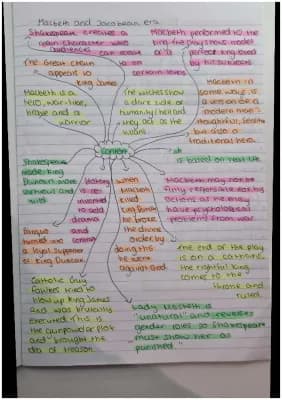 Macbeth and Jacobean era
Shakespeare creates a
character who
audiences can
Macbeth performed to the
king. The play shows model
of a perfect king loved
by his subjects
The Great chain
appears to
King James
on
certain levels
Macbeth in
some ways is
a version of a
modern hero -
thoughtful, sensitive
but also a
traditional hero.
Macbeth is a
hero, war-hero,
brave and a
warrior
The witches show
a dark side of
humanity/hell and
they act as the
Context
It
is based on real life
Shakespeare
made King
Duncan more
virtuous and
mild
History
is re-
invented
to add
drama
and
when
Macbeth
killed
King Duncan
he broke
the divine
order by
doing this
he went
against God.
Macbeth may not be
fully responsible for his
actions as he may
have psychological
problems from war.
Banquo
turned into
a loyal supporter
of King Duncan
The end of the play
is on a catharsis,
the rightful king
comes to the
throne and
ruled.
Catholic Guy
Fawkes tried to
blow up King James
and was brutally
executed. This is
the gunpowder plot
and brought the
idea of treason.
Lady Macbeth is
"unnatural" and reverses
gender roles so Shakespeare
must show her as
punished